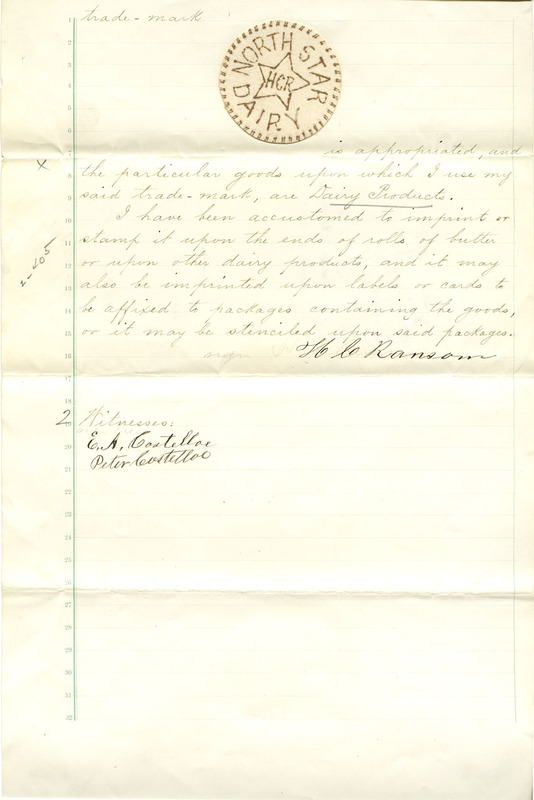 trade-mark
NORTH STAR
HCR
DAIRY
is appropriated, and
the particular goods upon which I use my
said trade-mark, are Dairy Products.
I have been accustomed to imprint or
stamp it upon the ends of rolls of butter
or upon other dairy products, and it may
also be imprinted upon labels or cards to
be affixed to packages containing the goods,
or it may be stenciled upon said packages.
H C Ransom
2 Witnesses:
E. A. Costelloe
Peter Costelloe
x
2-205
2
3
4
5
6
7
8
9
10
11
12
13
14
15
16
17
18
19
20
21
22
23
24
25
26
27
28
29
30
31
32